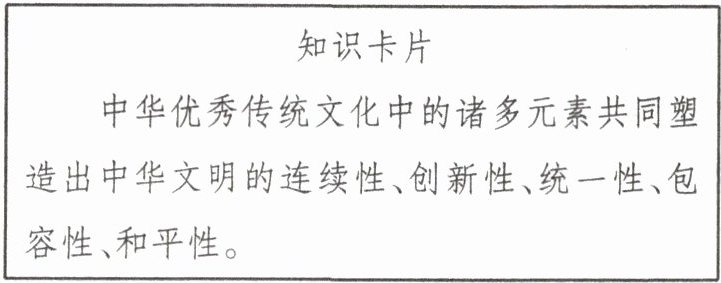 知识卡片
中华优秀传统文化中的诸多元素共同塑
造出中华文明的连续性、创新性、统一性、包
容性、和平性。